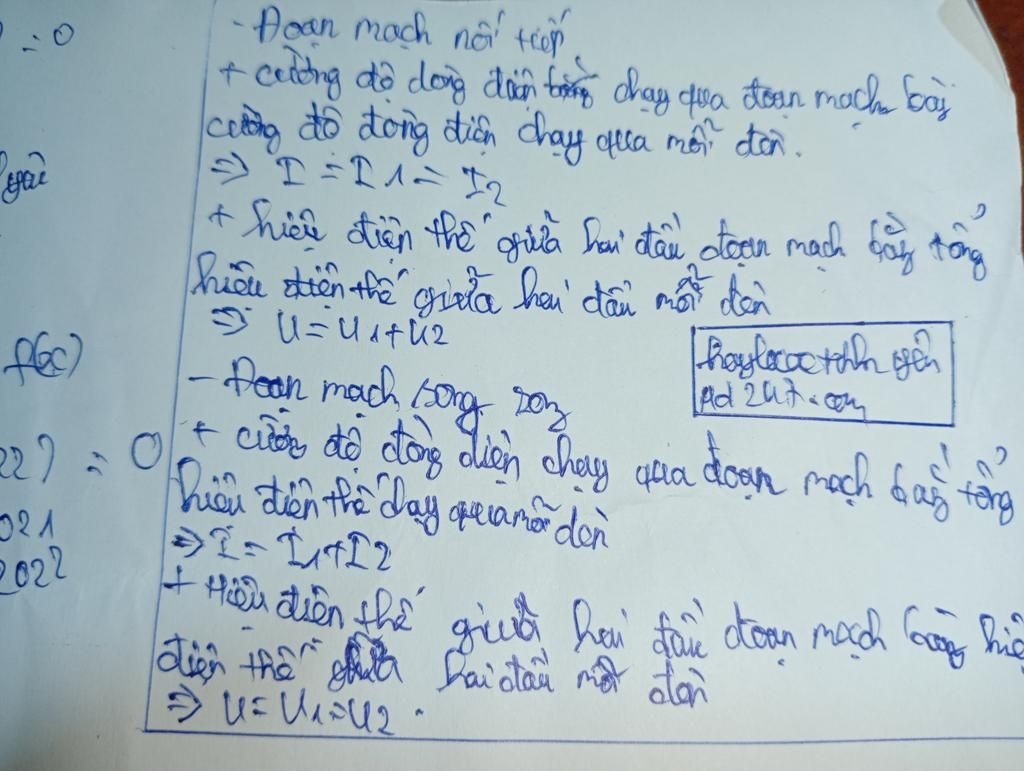 - Đoạn mạch nối tiếp
+ cường độ dòng điện chạy qua đoạn mạch bằng
cường độ dòng điện chạy qua mỗi đèn.
=> I = I1 = I2
+ hiệu điện thế giữa hai đầu đoạn mạch bằng tổng
hiệu điện thế giữa hai đầu mỗi đèn
=> U = U1 + U2
- Đoạn mạch song song
+ cường độ dòng điện chạy qua đoạn mạch bằng tổng
hiệu điện thế chạy qua mỗi đèn
=> I = I1 + I2
+ Hiệu điện thế giữa hai đầu đoạn mạch bằng hiệ
điện thế giữa hai đầu mỗi đèn
=> U = U1 = U2.
= 0
f(x)
22) = 0
021
2022
247.com